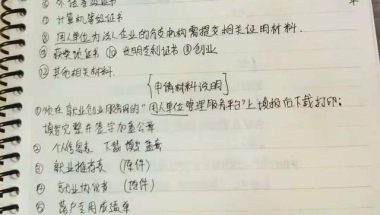 外语等级证书
⑦ 计算机等级证书
⑧ 用人单位为法人企业的分支机构需提交相关证明材料.
⑨ 获奖证书 ⑩ 发明专利证书 ⑪ 创业
⑫ 其他相关材料.
【申请材料说明】
①须在就业创业服务网的"用人单位管理服务平台"上填报后下载打印;
填写完整并签字加盖公章.
② 个人信息表 下载 填写 盖章
③ 就业推荐表 (原件)
④ 就业协议书 (原件)
⑤ 落户专用成绩单